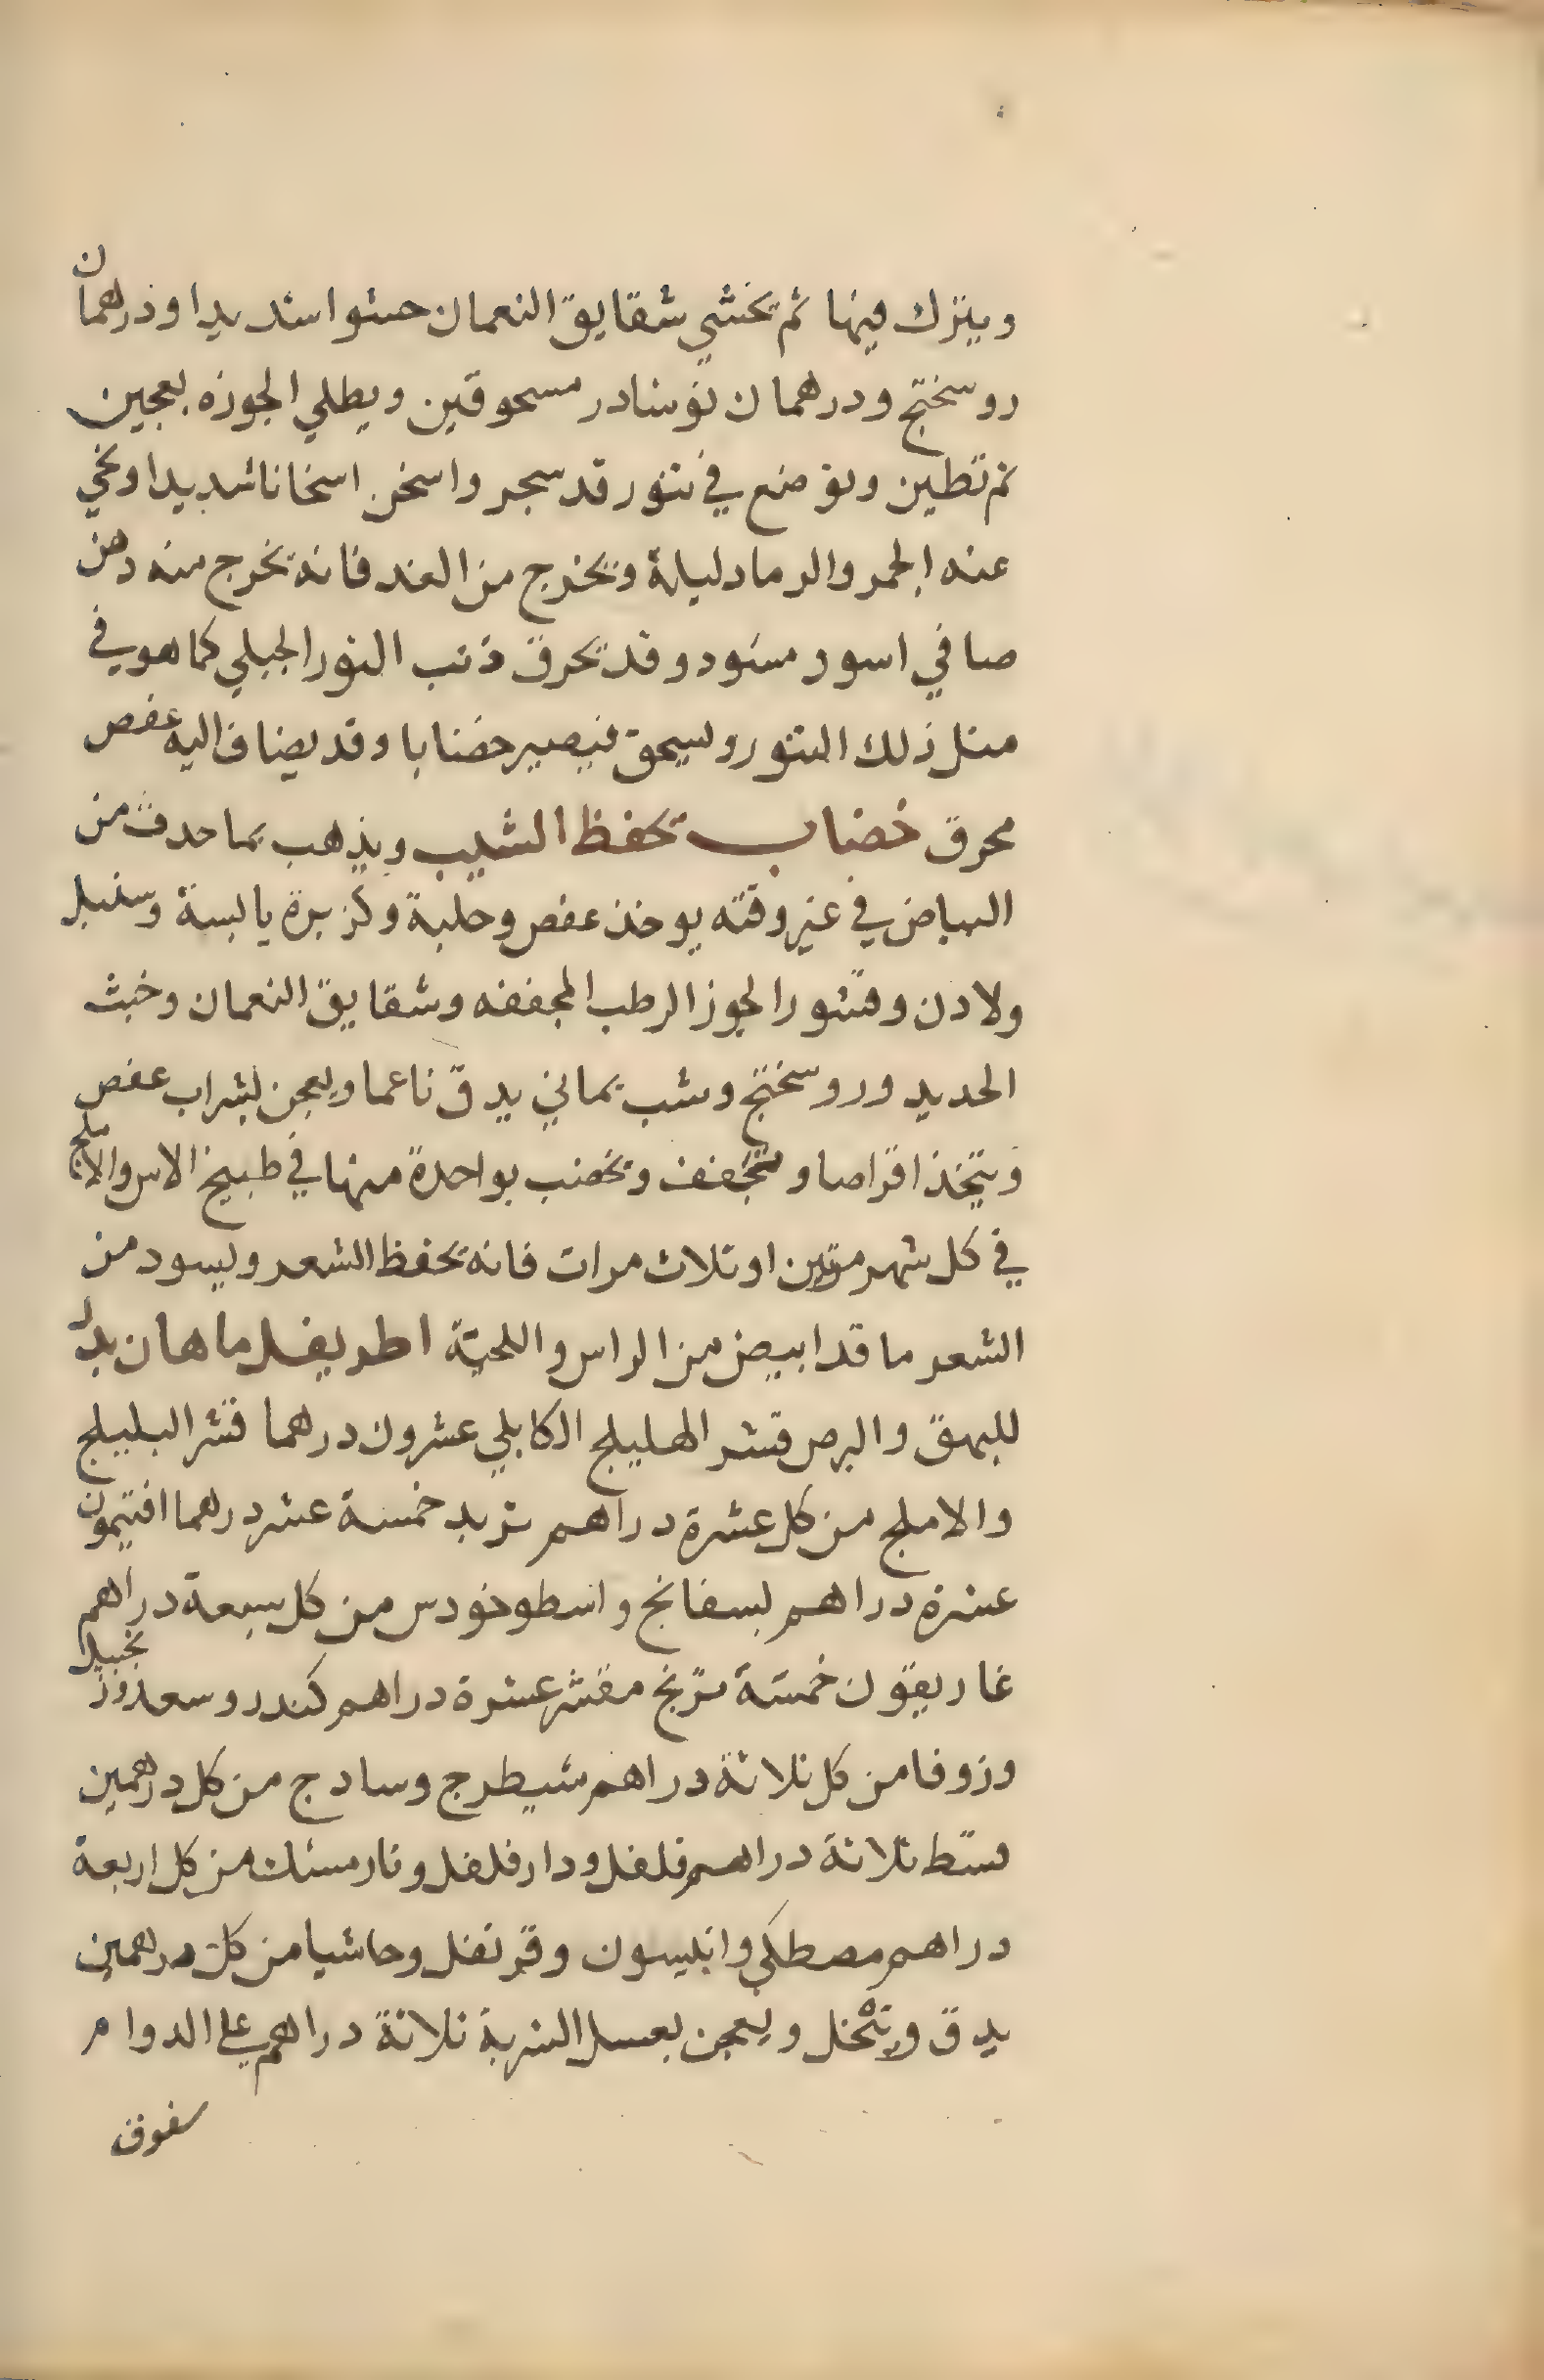 ويترك فيها ثم تخشي شقايق النعمان حشوا شديدا ودرهمان
روسختج ودرهمان نوشادر مسحوقين ويطلي الجوزه بعجين
ثم تطين وتوضع في تنور قد سجر واسخن اسخانا شديدا ونحي
عنه الجمر والرماد ليلة وتخرج من الغد فانه يخرج منه دهن
صافي اسود مسود وقد يحرق ذنب الثور الجبلي كما هو في
مثل ذلك التنور ويسحق فيصير خضابا وقد يضاف اليه عفص
محرق خضاب يحفظ الشيب ويذهب بما حدث من
البياض في غير وقته يوخذ عفص وحلبة وكزبرة يابسة وسنبل
ولادن وقشور الجوز الرطب المجففه وشقايق النعمان وخبث
الحديد وروسختج وشب يماني يدق ناعما ويعجن بشراب عفص
ويتخذ اقراصا وتجفف ويخضب بواحدة منها في طبيخ الاس والاملج
في كل شهر مرتين او ثلاث مرات فانه يحفظ الشعر ويسود من
الشعر ما قد ابيض من الراس واللحية اطريفل ماهان
للبهق والبرص قشر الهليلج الكابلي عشرون درهما قشر البليلج
والاملج من كل عشرة دراهم تربد خمسة عشر درهما افتيمون
عشرة دراهم بسفانج واسطوخودس من كل سبعة دراهم
غاريقون خمسة برنج مقشر عشرة دراهم كندر وسعد وزنجبيل
وزوفا من كل ثلاثة دراهم شيطرج وسادج من كل درهمين
قسط ثلاثة دراهم فلفل ودارفلفل ونارمشك من كل اربعة
دراهم مصطكي وانيسون وقرنفل وحاشيا من كل درهمين
يدق وينخل ويعجن بعسل الشربة ثلاثة دراهم علي الدوام
سفوف